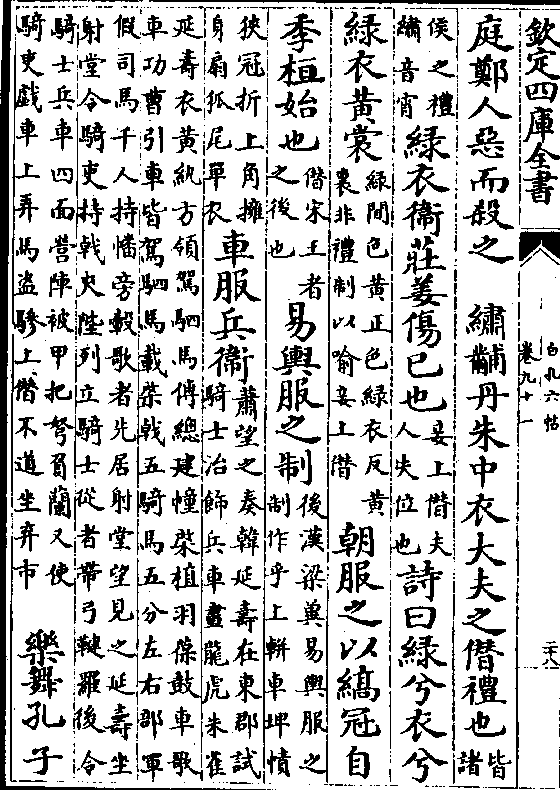 欽定四庫全書
白孔六帖
卷九十一
二十八
庭鄭人惡而殺之　繡黼丹朱中衣大夫之僭禮也皆諸
侯之禮繡音宵綠衣衞莊姜傷已也妾上僭夫人失位也詩曰綠兮衣兮
綠衣黃裳綠間色黃正色綠衣反黃裏非禮制以喻妾上僭　朝服之以縞冠自
季桓始也僭宋王者之後也　易輿服之制後漢梁冀易輿服之制作乎上軿車埤幘
狹冠折上角擁身扇狐尾單衣　車服兵衞蕭望之奏韓延壽在東郡試騎士治飾兵車畫龍虎朱雀
延壽衣黃紈方領駕駟馬傅總建幢棨植羽葆鼓車歌
車功曹引車皆駕駟馬載棨戟五騎馬五分左右郡軍
假司馬千人持幡旁轂歌者先居射堂望見之延壽坐
射堂令騎吏持戟夾陛列立騎士從者帶弓鞬羅後令
騎士兵車四面營陣被甲把弩負蘭又使
騎吏戲車上弄馬盜驂上僭不道坐弃市　樂舞孔子